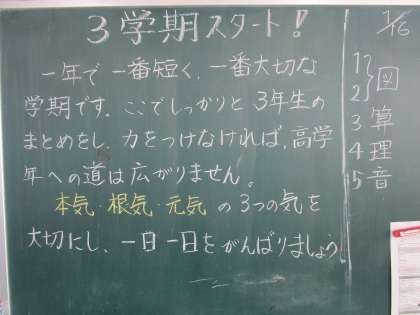 3学期スタート!
一年で一番短く、一番大切な
学期です。ここでしっかりと3年生の
まとめをし、力をつけなければ、高学
年への道は広がりません。
本気・根気・元気の3つの気を
大切にし、一日一日をがんばりましょう。
1/16
1
2 図
3 算
4 理
5 音